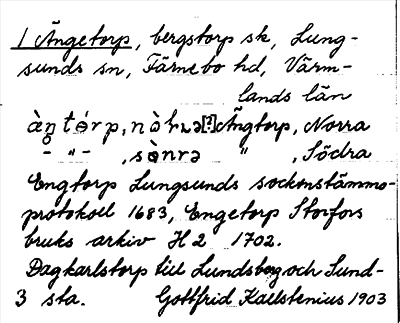 1 Ängetorp, bergstorp sk, Lung-
sunds sn, Färnebo hd, Värm-
lands län
Ängtorp, Norra
- " - , sò̀nrə " , Södra
Engtorp Lungsunds sockenstämmo-
protokoll 1683, Engetorp Storfors
bruks arkiv H 2 1702.
Dagkarlstorp till Lundsberg och Sund-
3 sta. Gottfrid Kallstenius 1903